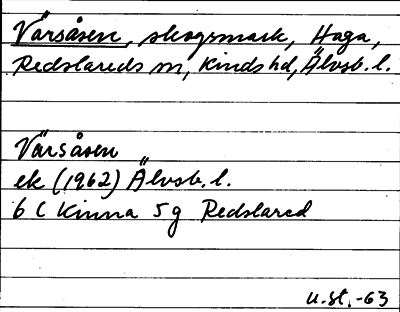 Vårsåsen, skogsmark, Haga,
Redslareds sn, Kinds hd, Älvsb. l.
Vårsåsen
ek (1962) Älvsb. l.
6 C Kinna 5 g Redslared
u.st. -63